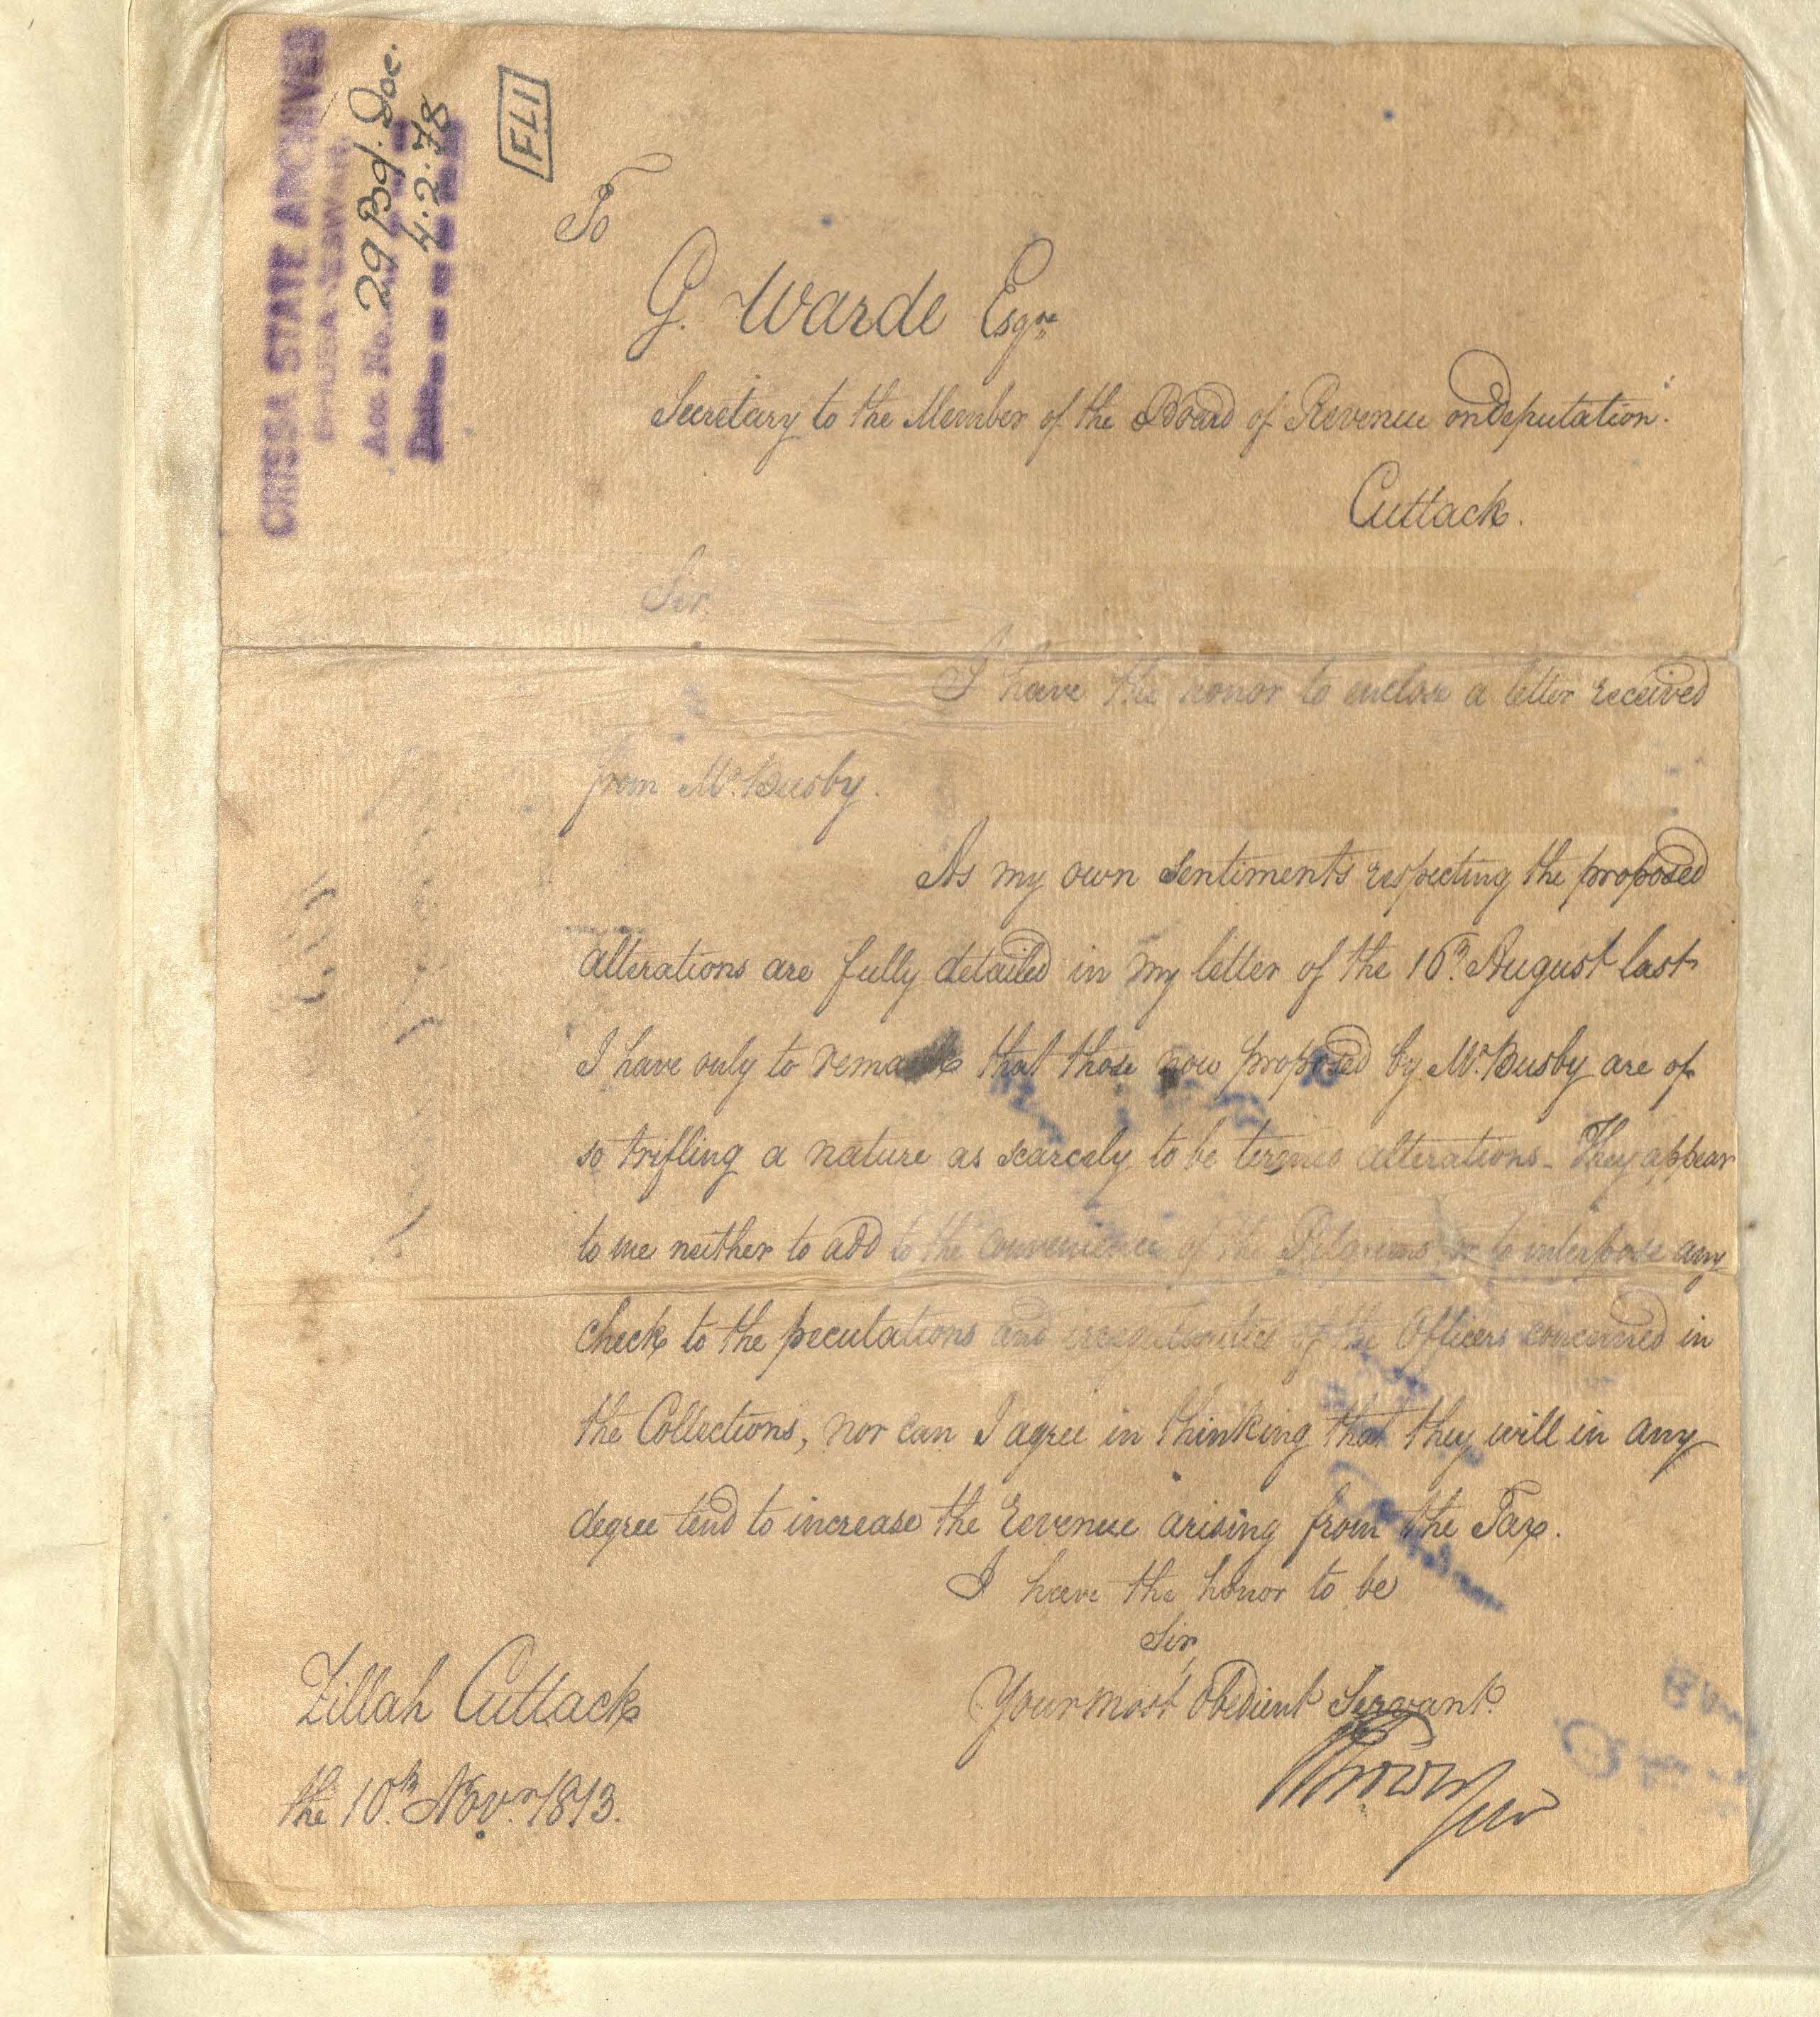 ORISSA STATE ARCHIVES
BHUBANESWAR
Acc. No. 29 Bd. Doc.
Date 4.2.78
FLI
To
G. Warde Esqre
Secretary to the Member of the Board of Revenue on Deputation.
Cuttack.
Sir,
I have the honor to enclose a letter received
from Mr. Busby.
As my own Sentiments respecting the proposed
alterations are fully detailed in my letter of the 16th. August last
I have only to remark that those now proposed by Mr. Busby are of
so trifling a nature as scarcely to be termed alterations - They appear
to me neither to add to the convenience of the Pilgrims or to interpose any
check to the peculations and of the Officers concerned in
the Collections, nor can I agree in thinking that they will in any
degree tend to increase the Revenue arising from the Tax.
I have the honor to be
Sir,
Your most obedient Servant
Zillah Cuttack
the 10th. Novr. 1813.